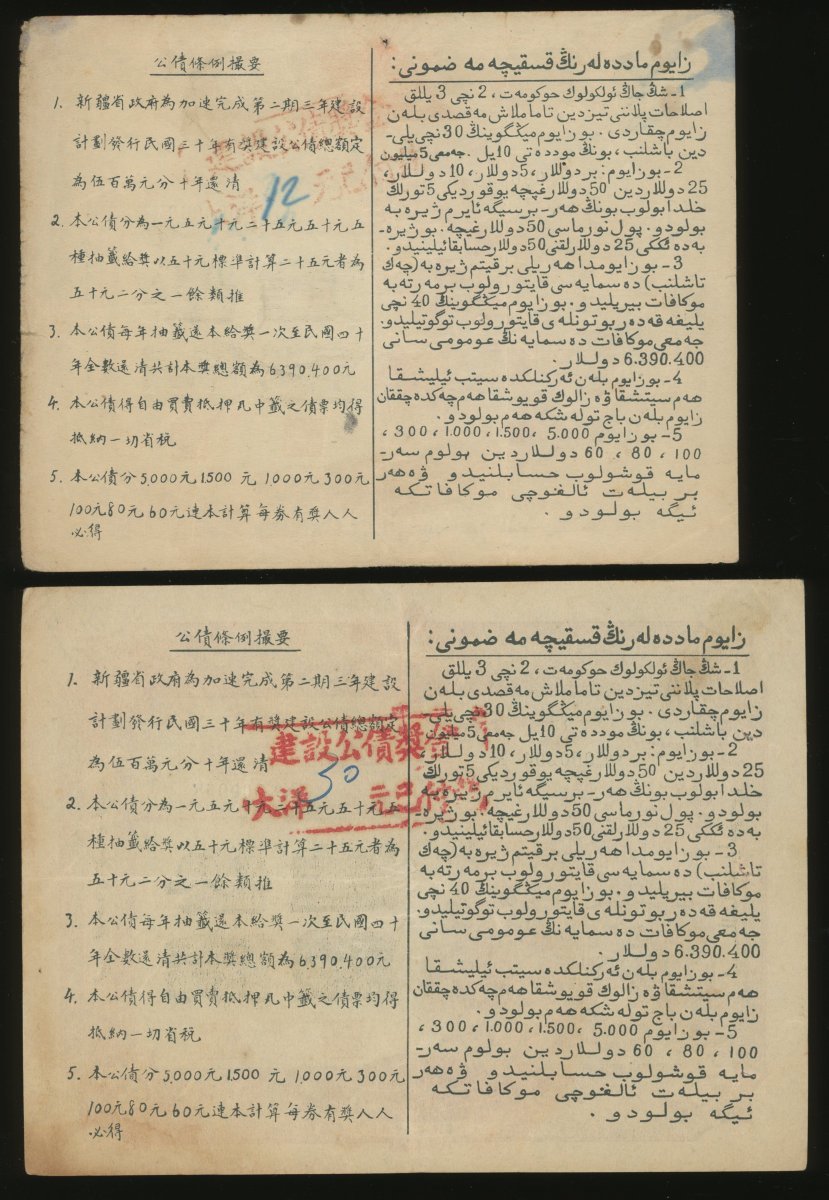 公債條例撮要
1. 新疆省政府為加速完成第二期三年建設
計劃發行民國三十年有獎建設公債總額定
為伍百萬元分十年還清
2. 本公債分為一元五元十元二十五元五十元五
種抽籤給獎以五十元標準計算二十五元者為
五十元二分之一餘類推
3. 本公債每年抽籤還本給獎一次至民國四十
年全數還清共計本獎總額為6390.400元
4. 本公債得自由買賣抵押凡中籤之債票均得
抵納一切省稅
5. 本公債分5,000元1.500 元 1,000元300元
100元80元60元連本計算每券有獎人人
必得
12
زايوم ماددەلەرنىڭ قىسقىچە مەضمونى:
1- شىڭ جاڭ ئولكولوك حوكومەت، 2 نچى 3 يىللق
اصلاحات پلاننى تيزدين تاماملاش مەقصدى بلەن
زايوم چقاردى. بو زايوم مىڭگوينىڭ 30 نچى يلى-
دين باشلنب، بونىڭ موددەتى 10 يل. جەمعى 5 مىليون
2- بو زايوم: بر دوللار، 5 دوللار، 10 دوللار،
25 دوللاردين 50 دوللارغىچە يوقورديكى 5 تورلك
خلدا بولوب بونىڭ هەر- برسيگە ئايرم ژيرە بە
بولودو. پول نورماسى 50 دوللارغيچە. بو ژيرە-
بەدە ئككى 25 دوللارلقنى 50 دوللار حسابقا ئيلينيدو.
3- بو زايومدا هەر يلى بر قيتم ژيرە بە (چەك
تاشلنب) دە سمايە سى قايتورولوب برمەرتە بە
موكافات بيريليدو. بو زايوم مىڭگوينىڭ 40 نچى
يليغە قەدەر بوتونلەى قايتورولوب توگوتيليدو.
جەمعى موكافات دە سمايە نىڭ عومومى سانى
6.390.400 دوللار.
4- بو زايوم بلەن ئەركنلكدە سيتب ئيليشقا
هەم سيتشقا ۋە زالوك قويوشقا هەم چەكدە چققان
زايوم بلەن باج تولەشكە هەم بولودو.
5- بو زايوم 5.000 ، 1.500، 1.000 ، 300 ،
100 ، 80 ، 60 دوللاردين بولوم سەر-
مايە قوشولوب حسابلنيدو ۋە هەر
بر بيلەت ئالغوچى موكافاتكە
ئيگە بولودو.
公債條例撮要
1. 新疆省政府為加速完成第二期三年建設
計劃發行民國三十年有獎建設公債總額定
為伍百萬元分十年還清
2. 本公債分為一元五元十元二十五元五十元五
種抽籤給獎以五十元標準計算二十五元者為
五十元二分之一餘類推
3. 本公債每年抽籤還本給獎一次至民國四十
年全數還清共計本獎總額為6390.400元
4. 本公債得自由買賣抵押凡中籤之債票均得
抵納一切省稅
5. 本公債分5,000元1.500 元 1,000元300元
100元80元60元連本計算每券有獎人人
必得
建設公債獎
大洋
50
زايوم ماددەلەرنىڭ قىسقىچە مەضمونى:
1- شىڭ جاڭ ئولكولوك حوكومەت، 2 نچى 3 يىللق
اصلاحات پلاننى تيزدين تاماملاش مەقصدى بلەن
زايوم چقاردى. بو زايوم مىڭگوينىڭ 30 نچى يلى-
دين باشلنب، بونىڭ موددەتى 10 يل جەمعى 5 مىليون
2- بو زايوم: بر دوللار، 5 دوللار، 10 دوللار،
25 دوللاردين 50 دوللارغىچە يوقورديكى 5 تورلك
خلدا بولوب بونىڭ هەر- برسيگە ئايرم ژيرە بە
بولودو. پول نورماسى 50 دوللارغيچە. بو ژيرە-
بەدە ئككى 25 دوللارلقنى 50 دوللار حسابقا ئيلينيدو.
3- بو زايومدا هەر يلى بر قيتم ژيرە بە (چەك
تاشلنب) دە سمايە سى قايتورولوب برمەرتە بە
موكافات بيريليدو. بو زايوم مىڭگوينىڭ 40 نچى
يليغە قەدەر بوتونلەى قايتورولوب توگوتيليدو.
جەمعى موكافات دە سمايە نىڭ عومومى سانى
6.390.400 دوللار.
4- بو زايوم بلەن ئەركنلكدە سيتب ئيليشقا
هەم سيتشقا ۋە زالوك قويوشقا هەم چەكدە چققان
زايوم بلەن باج تولەشكە هەم بولودو.
5- بو زايوم 5.000 ، 1.500، 1.000 ، 300 ،
100 ، 80 ، 60 دوللاردين بولوم سەر-
مايە قوشولوب حسابلنيدو ۋە هەر
بر بيلەت ئالغوچى موكافاتكە
ئيگە بولودو.